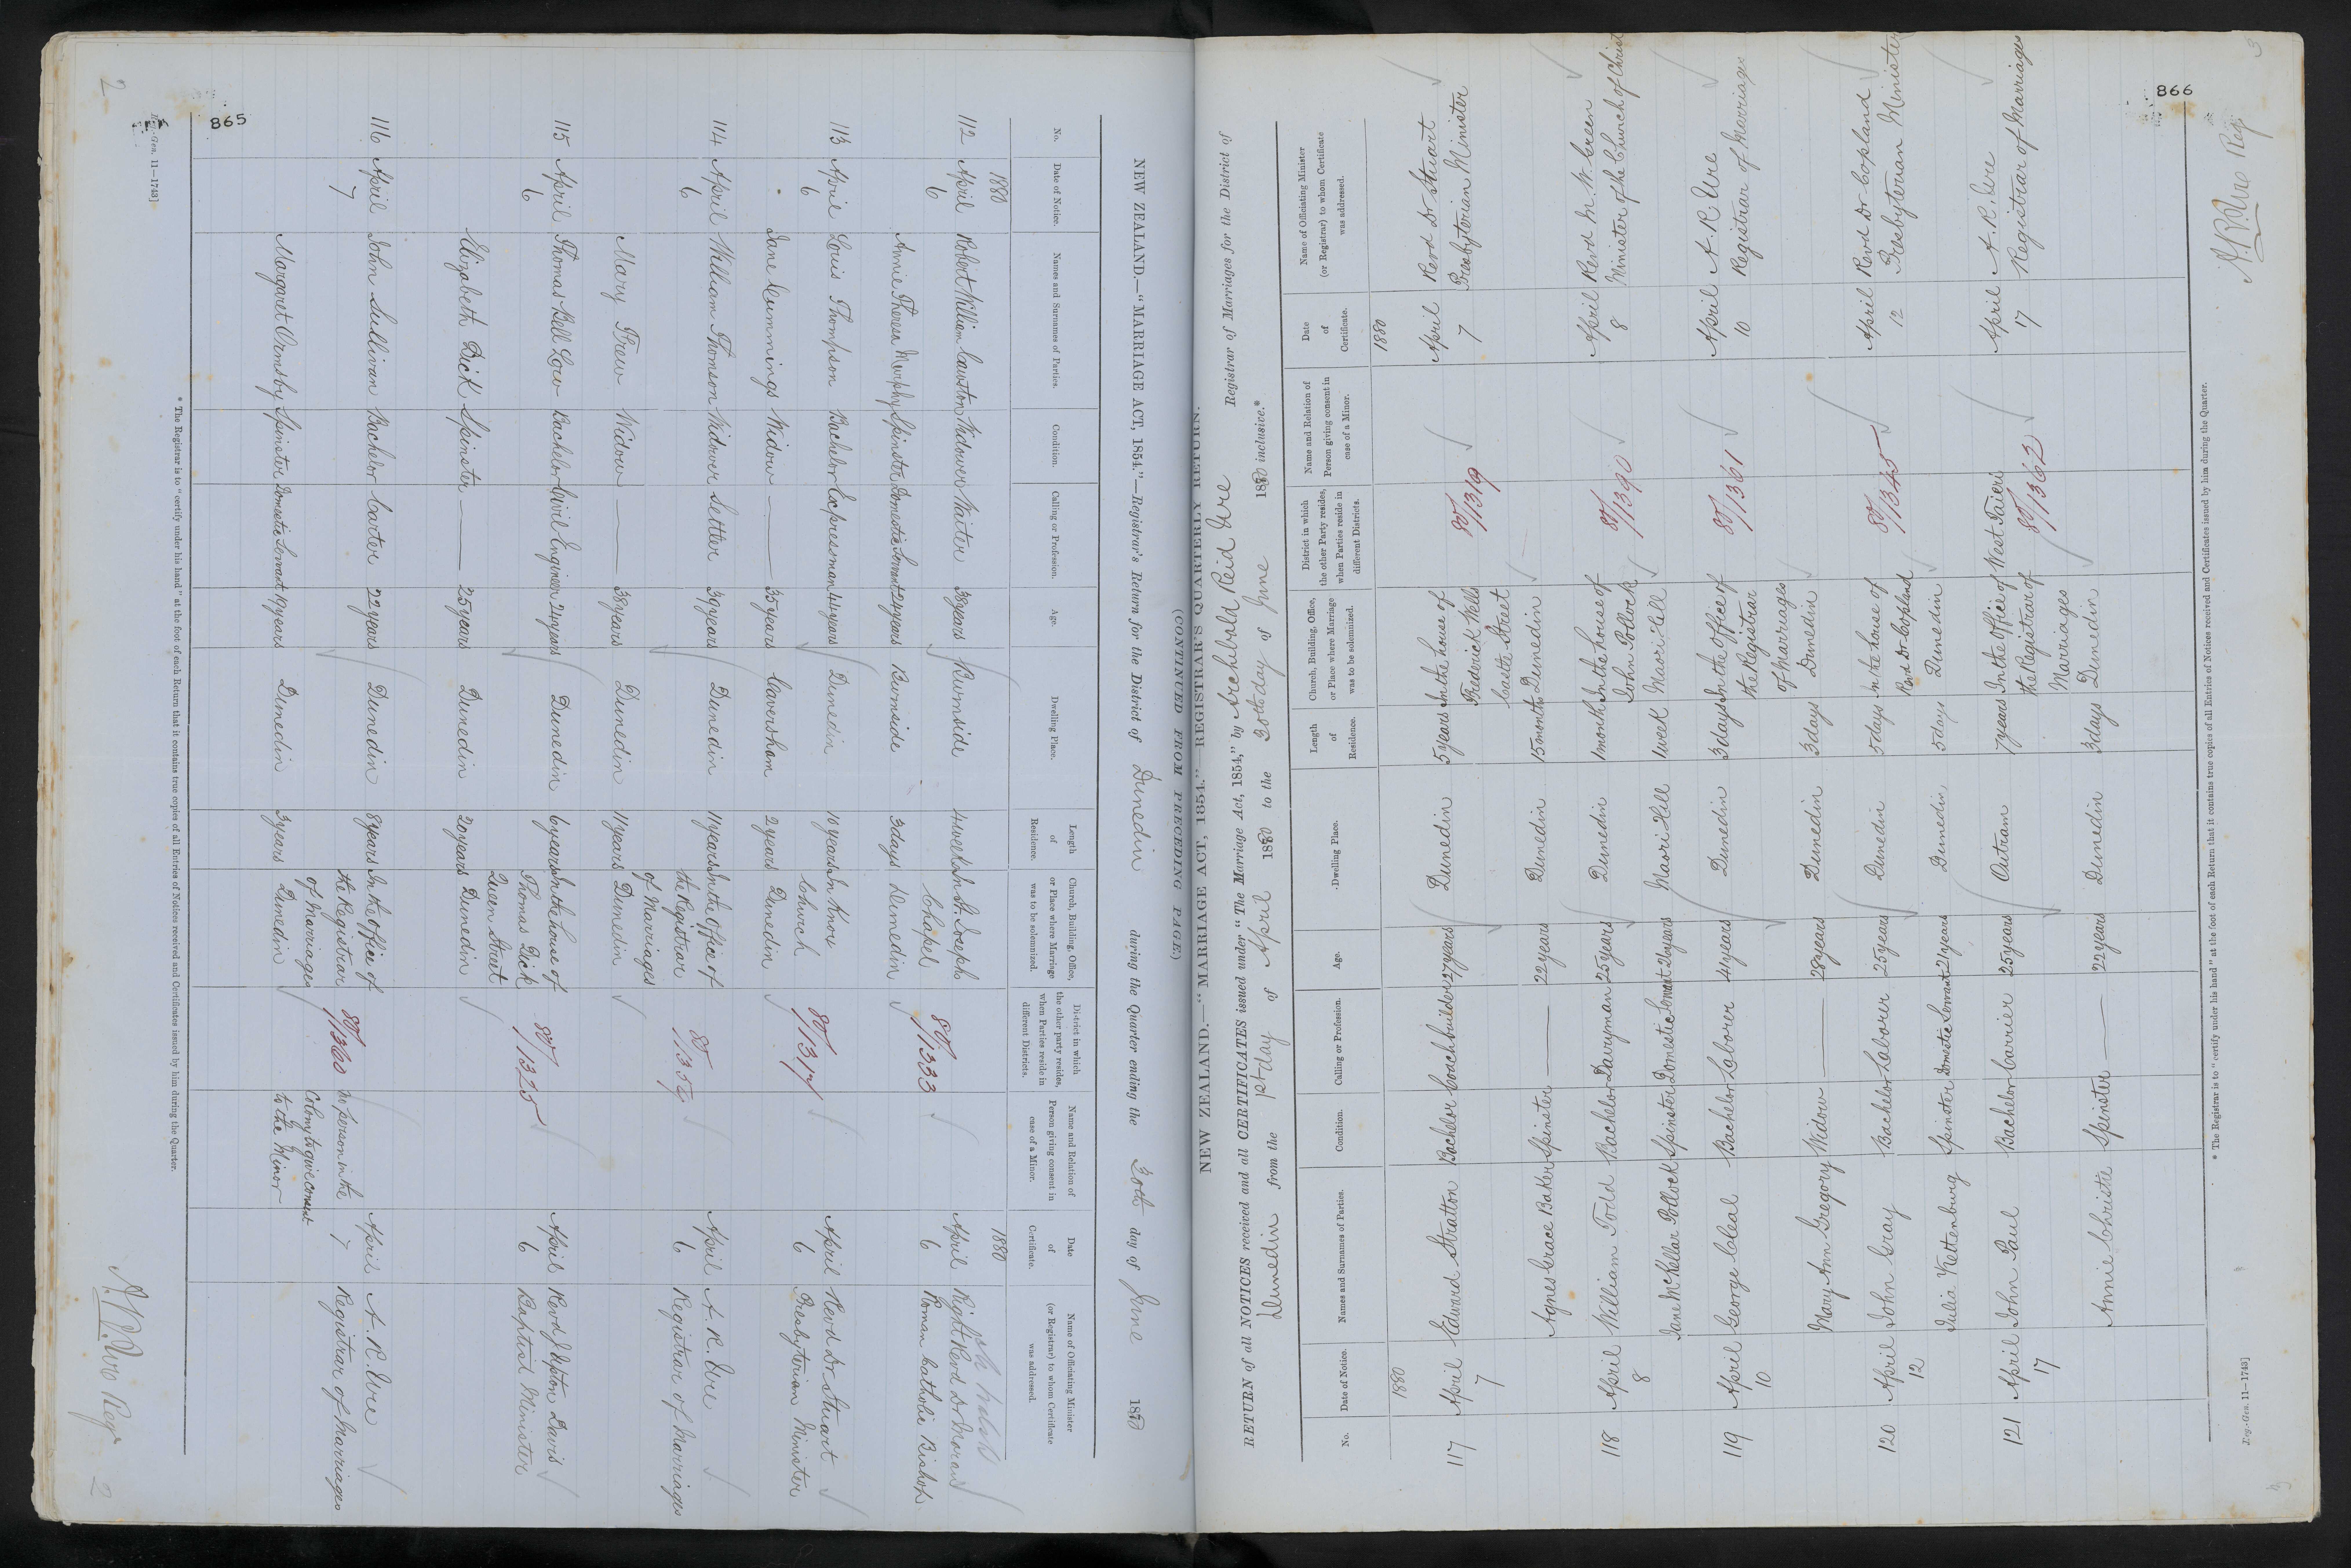 865
NEW ZEALAND.—"MARRIAGE ACT, 1854."—Registrar's Return for the District of Dunedin during the Quarter ending the 30th day of June 1880
No. Date of Notice. Names and Surnames of Parties. Condition. Calling or Profession. Age. Dwelling Place. Length of Residence. Church, Building, Office, or Place where Marriage was to be solemnized. District in which the other party resides, when Parties reside in different Districts. Name and Relation of Person giving consent in case of a Minor. Date of Certificate. Name of Officiating Minister (or Registrar) to whom Certificate was addressed.
1880 1880
112 April 6 Robert William Cawston Widower Waiter 38 years Burnside 4 weeks In St. Josephs Chapel Dunedin 80/1333 April 6 Right Revd Dr Moran Roman Catholic Bishop
Annie Theresa Murphy Spinster Domestic Servant 24 years Burnside 3 days
113 April 6 Louis Thompson Bachelor Expressman 44 years Dunedin 10 years In Knox Church Dunedin 80/1317 April 6 Revd Dr Stuart Presbyterian Minister
Jane Cummings Widow — 35 years Caversham 2 years
114 April 6 William Thomson Widower Settler 39 years Dunedin 11 years In the Office of the Registrar of Marriages Dunedin 80/1359 April 6 A. R. Ure Registrar of Marriages
Mary Frew Widow — 38 years Dunedin 11 years
115 April 6 Thomas Bell Low Bachelor Civil Engineer 24 years Dunedin 6 years In the house of Thomas Dick Queen Street Dunedin 80/1325 April 6 Revd Upton Davis Baptist Minister
Elizabeth Dick Spinster — 25 years Dunedin 20 years
116 April 7 John Sullivan Bachelor Carter 22 years Dunedin 8 years In the Office of the Registrar of Marriages Dunedin 80/1360 No person in the Colony to give consent to the Minor April 7 A. R. Ure Registrar of Marriages
Margaret Ormsby Spinster Domestic Servant 19 years Dunedin 3 years
* The Registrar is to "certify under his hand" at the foot of each Return that it contains true copies of all Entries of Notices received and Certificates issued by him during the Quarter.
Reg.-Gen. 11—1743]
A. R. Ure Regr
2
2
(CONTINUED FROM PRECEDING PAGE)
866
NEW ZEALAND.—"MARRIAGE ACT, 1854."—REGISTRAR'S QUARTERLY RETURN.
RETURN of all NOTICES received and all CERTIFICATES issued under "The Marriage Act, 1854," by Archibald Reid Ure Registrar of Marriages for the District of
Dunedin from the 1st day of April 1880 to the 30th day of June 1880 inclusive.*
No. Date of Notice. Names and Surnames of Parties. Condition. Calling or Profession. Age. Dwelling Place. Length of Residence. Church, Building, Office, or Place where Marriage was to be solemnized. District in which the other Party resides, when Parties reside in different Districts. Name and Relation of Person giving consent in case of a Minor. Date of Certificate. Name of Officiating Minister (or Registrar) to whom Certificate was addressed.
1880 1880
117 April 7 Edward Stratton Bachelor Coachbuilder 27 years Dunedin 5 years In the house of Frederick Wells Castle Street Dunedin 80/1319 April 7 Revd Dr Stuart Presbyterian Minister
Agnes Grace Baker Spinster — 22 years Dunedin 15 months
118 April 8 William Todd Bachelor Dairyman 25 years Dunedin 1 month In the house of John Pollock Maori Hill 80/1390 April 8 Revd M. W. Green Minister of the Church of Christ
Jane McKellar Pollock Spinster Domestic Servant 21 years Maori Hill 1 week
119 April 10 George Cleal Bachelor Laborer 41 years Dunedin 3 days In the Office of the Registrar of Marriages Dunedin 80/1361 April 10 A. R. Ure Registrar of Marriages
Mary Ann Gregory Widow — 28 years Dunedin 3 days
120 April 12 John Gray Bachelor Laborer 25 years Dunedin 5 days In the house of Revd Dr Copland Dunedin 80/1345 April 12 Revd Dr Copland Presbyterian Minister
Julia Kettenburg Spinster Domestic Servant 21 years Dunedin 5 days
121 April 17 John Paul Bachelor Carrier 25 years Outram 7 years In the Office of the Registrar of Marriages Dunedin West Taieri 80/1362 April 17 A. R. Ure Registrar of Marriages
Annie Christie Spinster — 22 years Dunedin 3 days
* The Registrar is to "certify under his hand" at the foot of each Return that it contains true copies of all Entries of Notices received and Certificates issued by him during the Quarter.
Reg.-Gen. 11—1743]
A. R. Ure Reg.
3
3